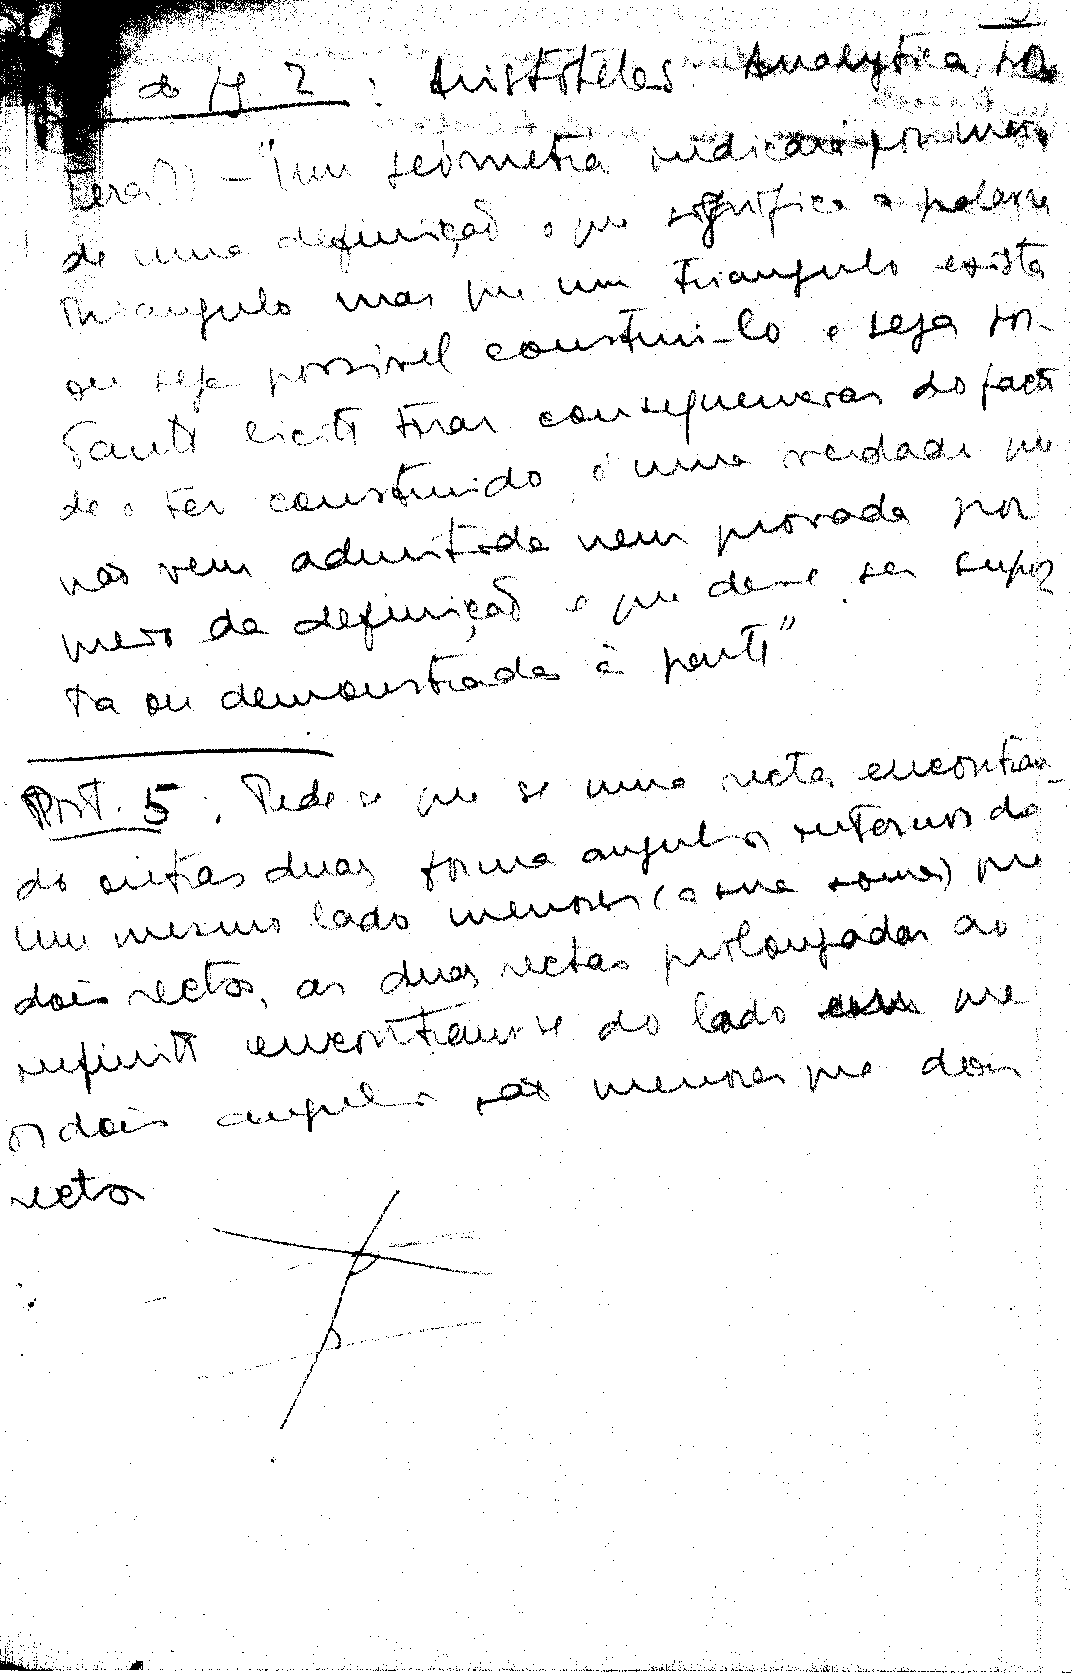 do pg. 2 : Aristoteles Analytica pos
teral) - "Um geometra indicará por meio
de uma definição o que significa a palavra
triangulo mas que um triangulo exista
ou seja possivel construi-lo e seja por-
tanto licito tirar consequencias do facto
de o ter construido, é uma verdade que
não vem admitida nem provada por
meio da definição e que deve ser supos
ta ou demonstrada à parte"
Post. 5 : Pede-se que se uma recta encontran-
do outras duas forma angulos internos do
um mesmo lado menores (a sua soma) que
dois rectos, as duas rectas prolongadas ao
infinito encontram-se do lado em que
os dois angulos são menores que dois
rectos